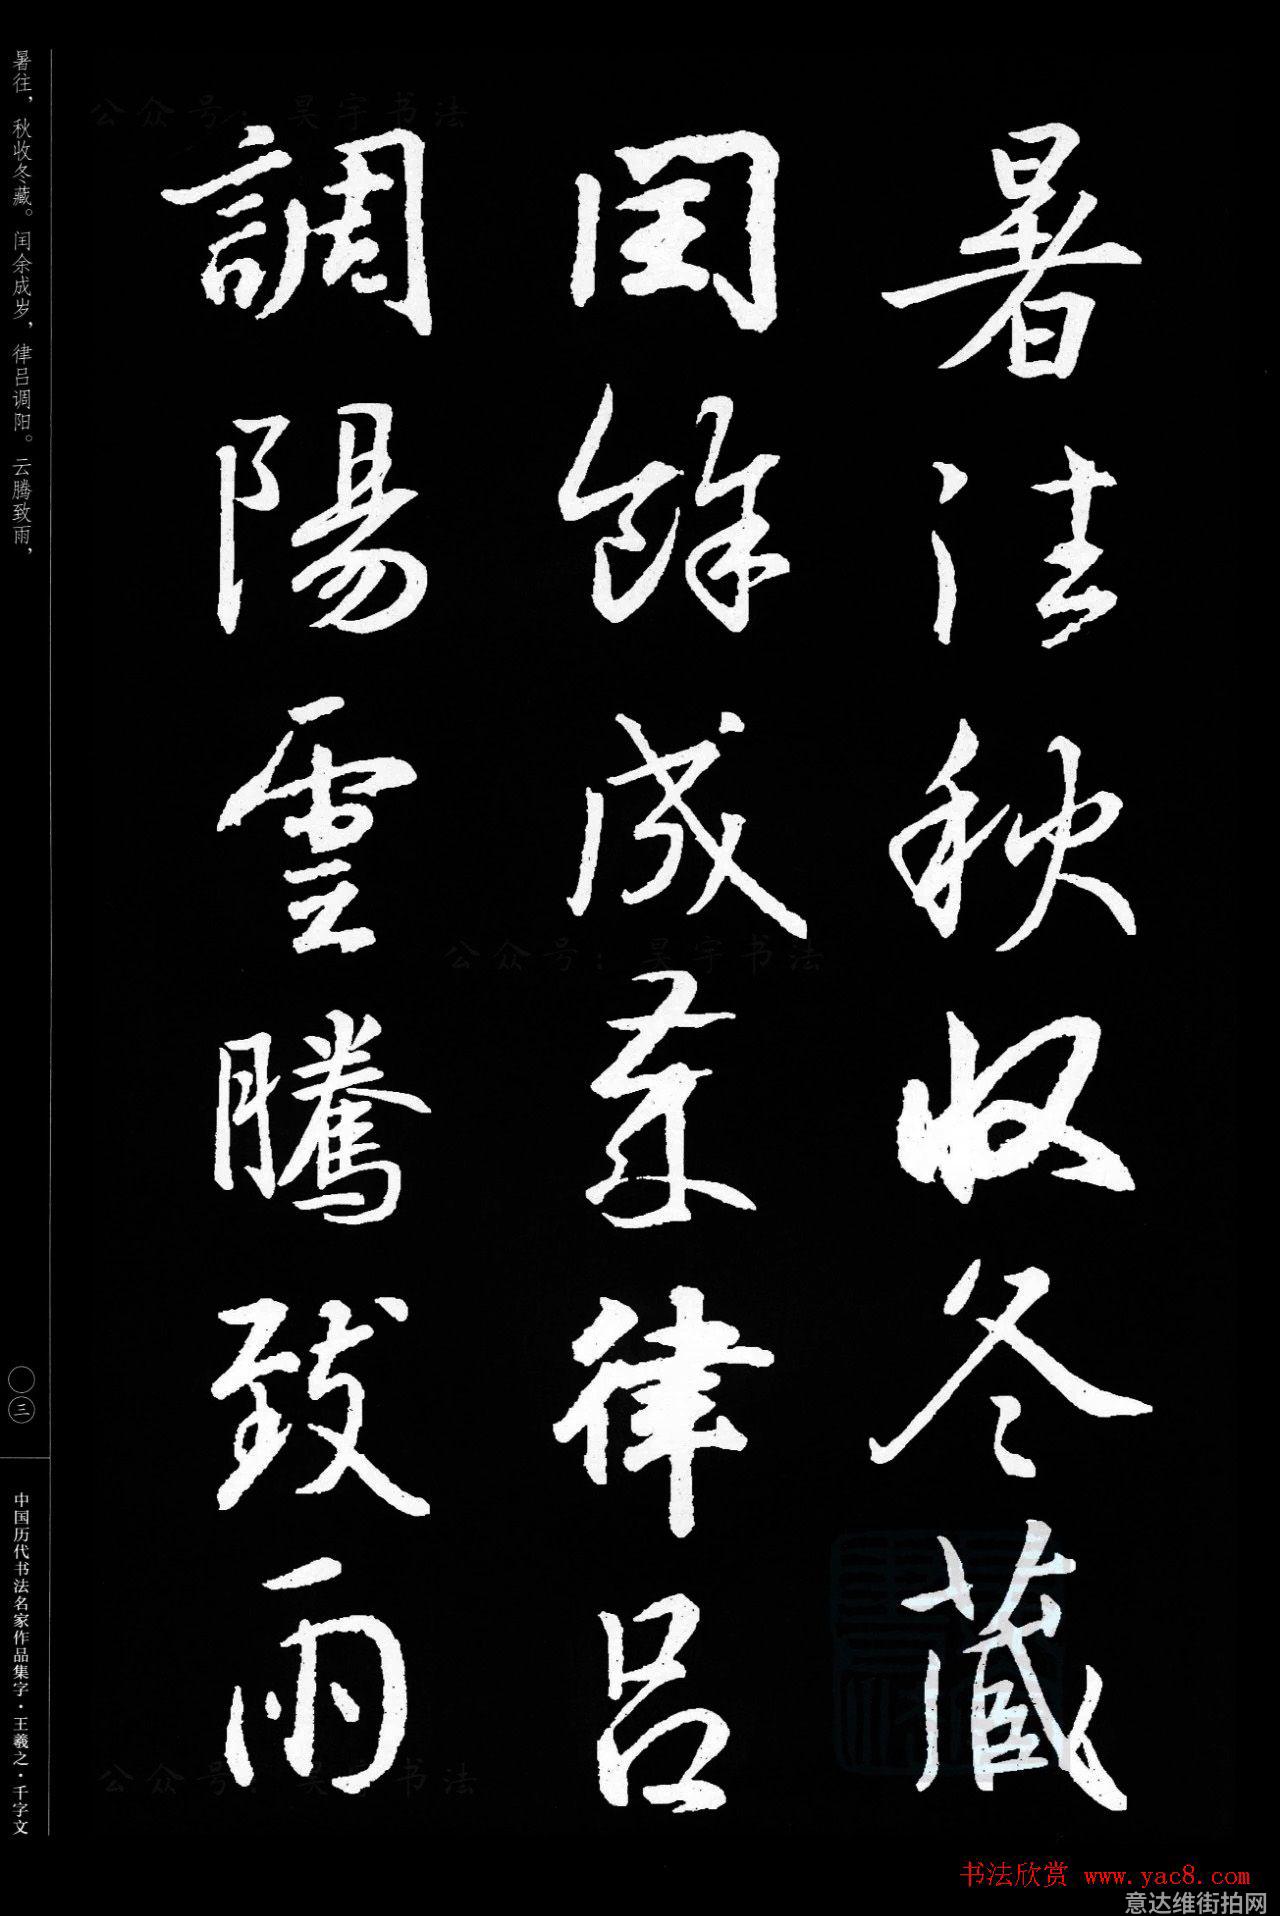 暑往秋收冬藏
闰餘成岁律吕
調陽雲騰致雨
暑往，秋收冬藏。闰余成岁，律吕调阳。云腾致雨，
〇三
中国历代书法名家作品集字·王羲之·千字文
公众号：昊宇书法
公众号：昊宇书法
公众号：昊宇书法
书法欣赏 www.yac8.com
意达维街拍网